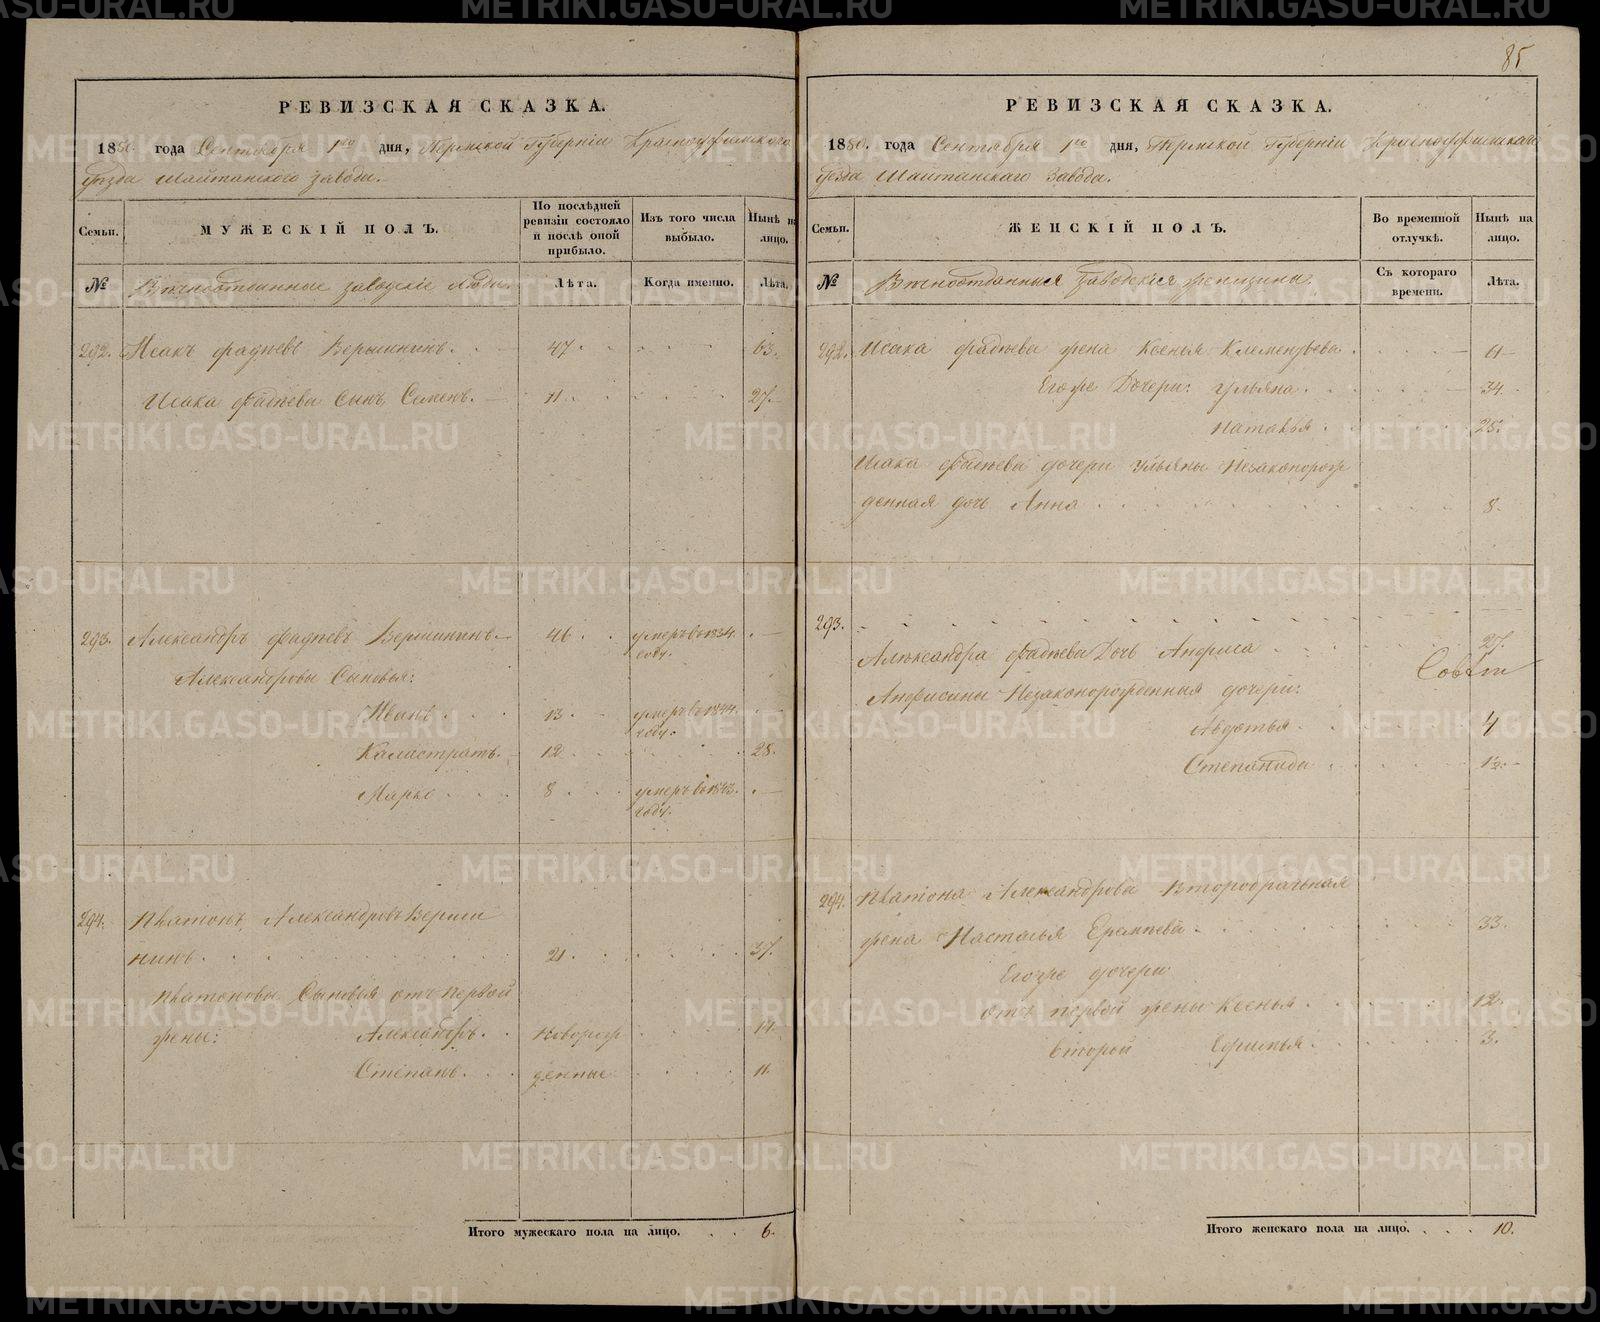 85
РЕВИЗСКАЯ СКАЗКА.
1850. года Сентября 1го дня, Пермской Губерніи Красноуфимскаго
уѣзда Шайтанскаго завода.
Семьи.
МУЖЕСКІЙ ПОЛЪ.
По послѣдней ревизіи состояло и послѣ оной прибыло.
Изъ того числа выбыло.
Нынѣ на лицо.
№
Вѣчноотданные заводскіе люди.
Лѣта.
Когда именно.
Лѣта.
292. Исакъ Фадѣевъ Вершининъ. 47. 63.
Исака Фадѣева сынъ Семенъ. 11. 27.
293. Александръ Фадѣевъ Вершининъ 46 умеръ въ 1834.
году.
Александровы Сыновья:
Иванъ. 13. умеръ въ 1844.
году.
Каластратъ. 12 28.
Марко 8 умеръ въ 1843.
году.
294. Платонъ Александровъ Верши
нинъ. 21. 37.
Платоновы Сыновья отъ первой
жены: Александръ. новорож 14.
Степанъ. денные 11.
Итого мужескаго пола на лицо. 6.
РЕВИЗСКАЯ СКАЗКА.
1850. года Сентября 1го дня, Пермской Губерніи Красноуфимскаго
уѣзда Шайтанскаго завода.
Семьи.
ЖЕНСКІЙ ПОЛЪ.
Во временной отлучкѣ.
Нынѣ на лицо.
№
Вѣчноотданныя заводскія женщины.
Съ котораго времени.
Лѣта.
292. Исака Фадѣева жена Ксенья Клементьева. 61
Его же Дочери: Ульяна. 34.
Наталья 25.
Исака Фадѣева дочери Ульяны Незаконорож
денная дочь Анна 8.
293.
Александра Фадѣева Дочь Анфиса 27.
Анфисины Незаконорожденныя дочери:
Авдотья. 4
Степанида 12.
294. Платона Александрова Второбрачная
жена Настасья Еремѣева. 33.
Его же дочери
отъ первой жены Ксенья. 12.
второй Ефимья. 3.
Итого женскаго пола на лицо. 10.